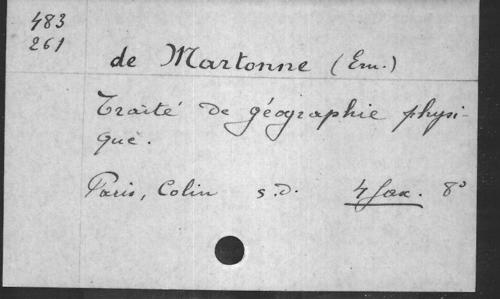 483
261
de Martonne (Em.)
Traité de géographie physi-
que.
Paris, Colin s.d. 4 fax. 8°